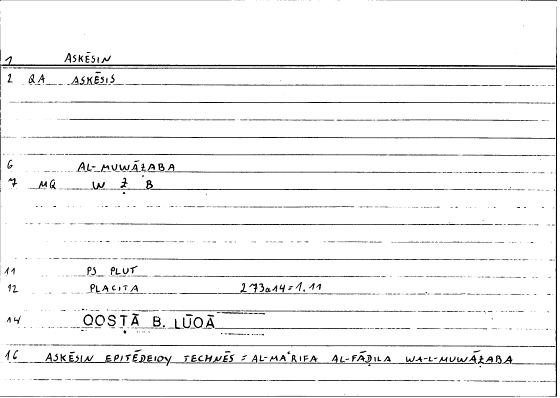 1 ASKĒSIN
2 QA ASKĒSIS
6 AL-MUWĀẒABA
7 MQ W Ẓ B
11 PS PLUT
12 PLACITA 273a14=1.11
14 QOSṬĀ B. LŪQĀ
16 ASKĒSIN EPITĒDEIOY TECHNĒS = AL-MAʿRIFA AL-FĀḌILA WA-L-MUWĀẒABA